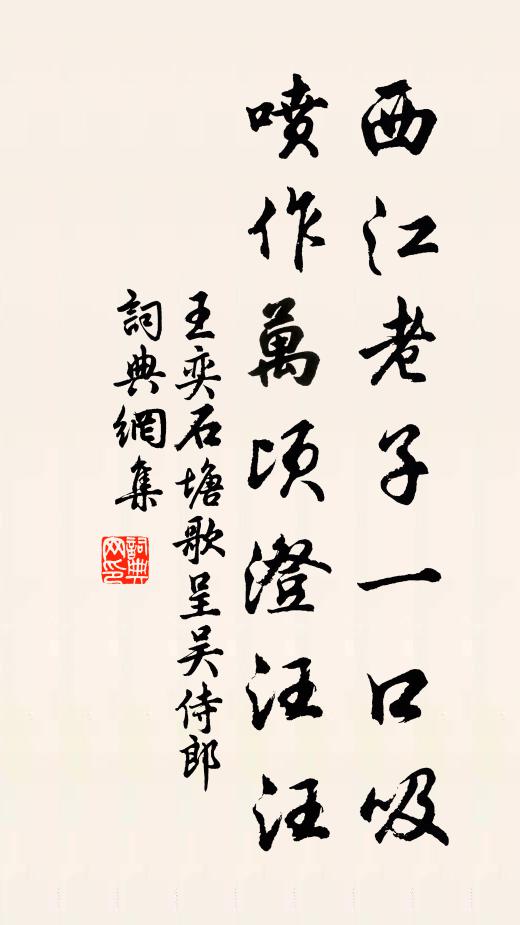 西江老子一口吸
噴作萬頃澄汪汪
王奕石塘歌呈吴侍郎
詞典網集
詞典网印